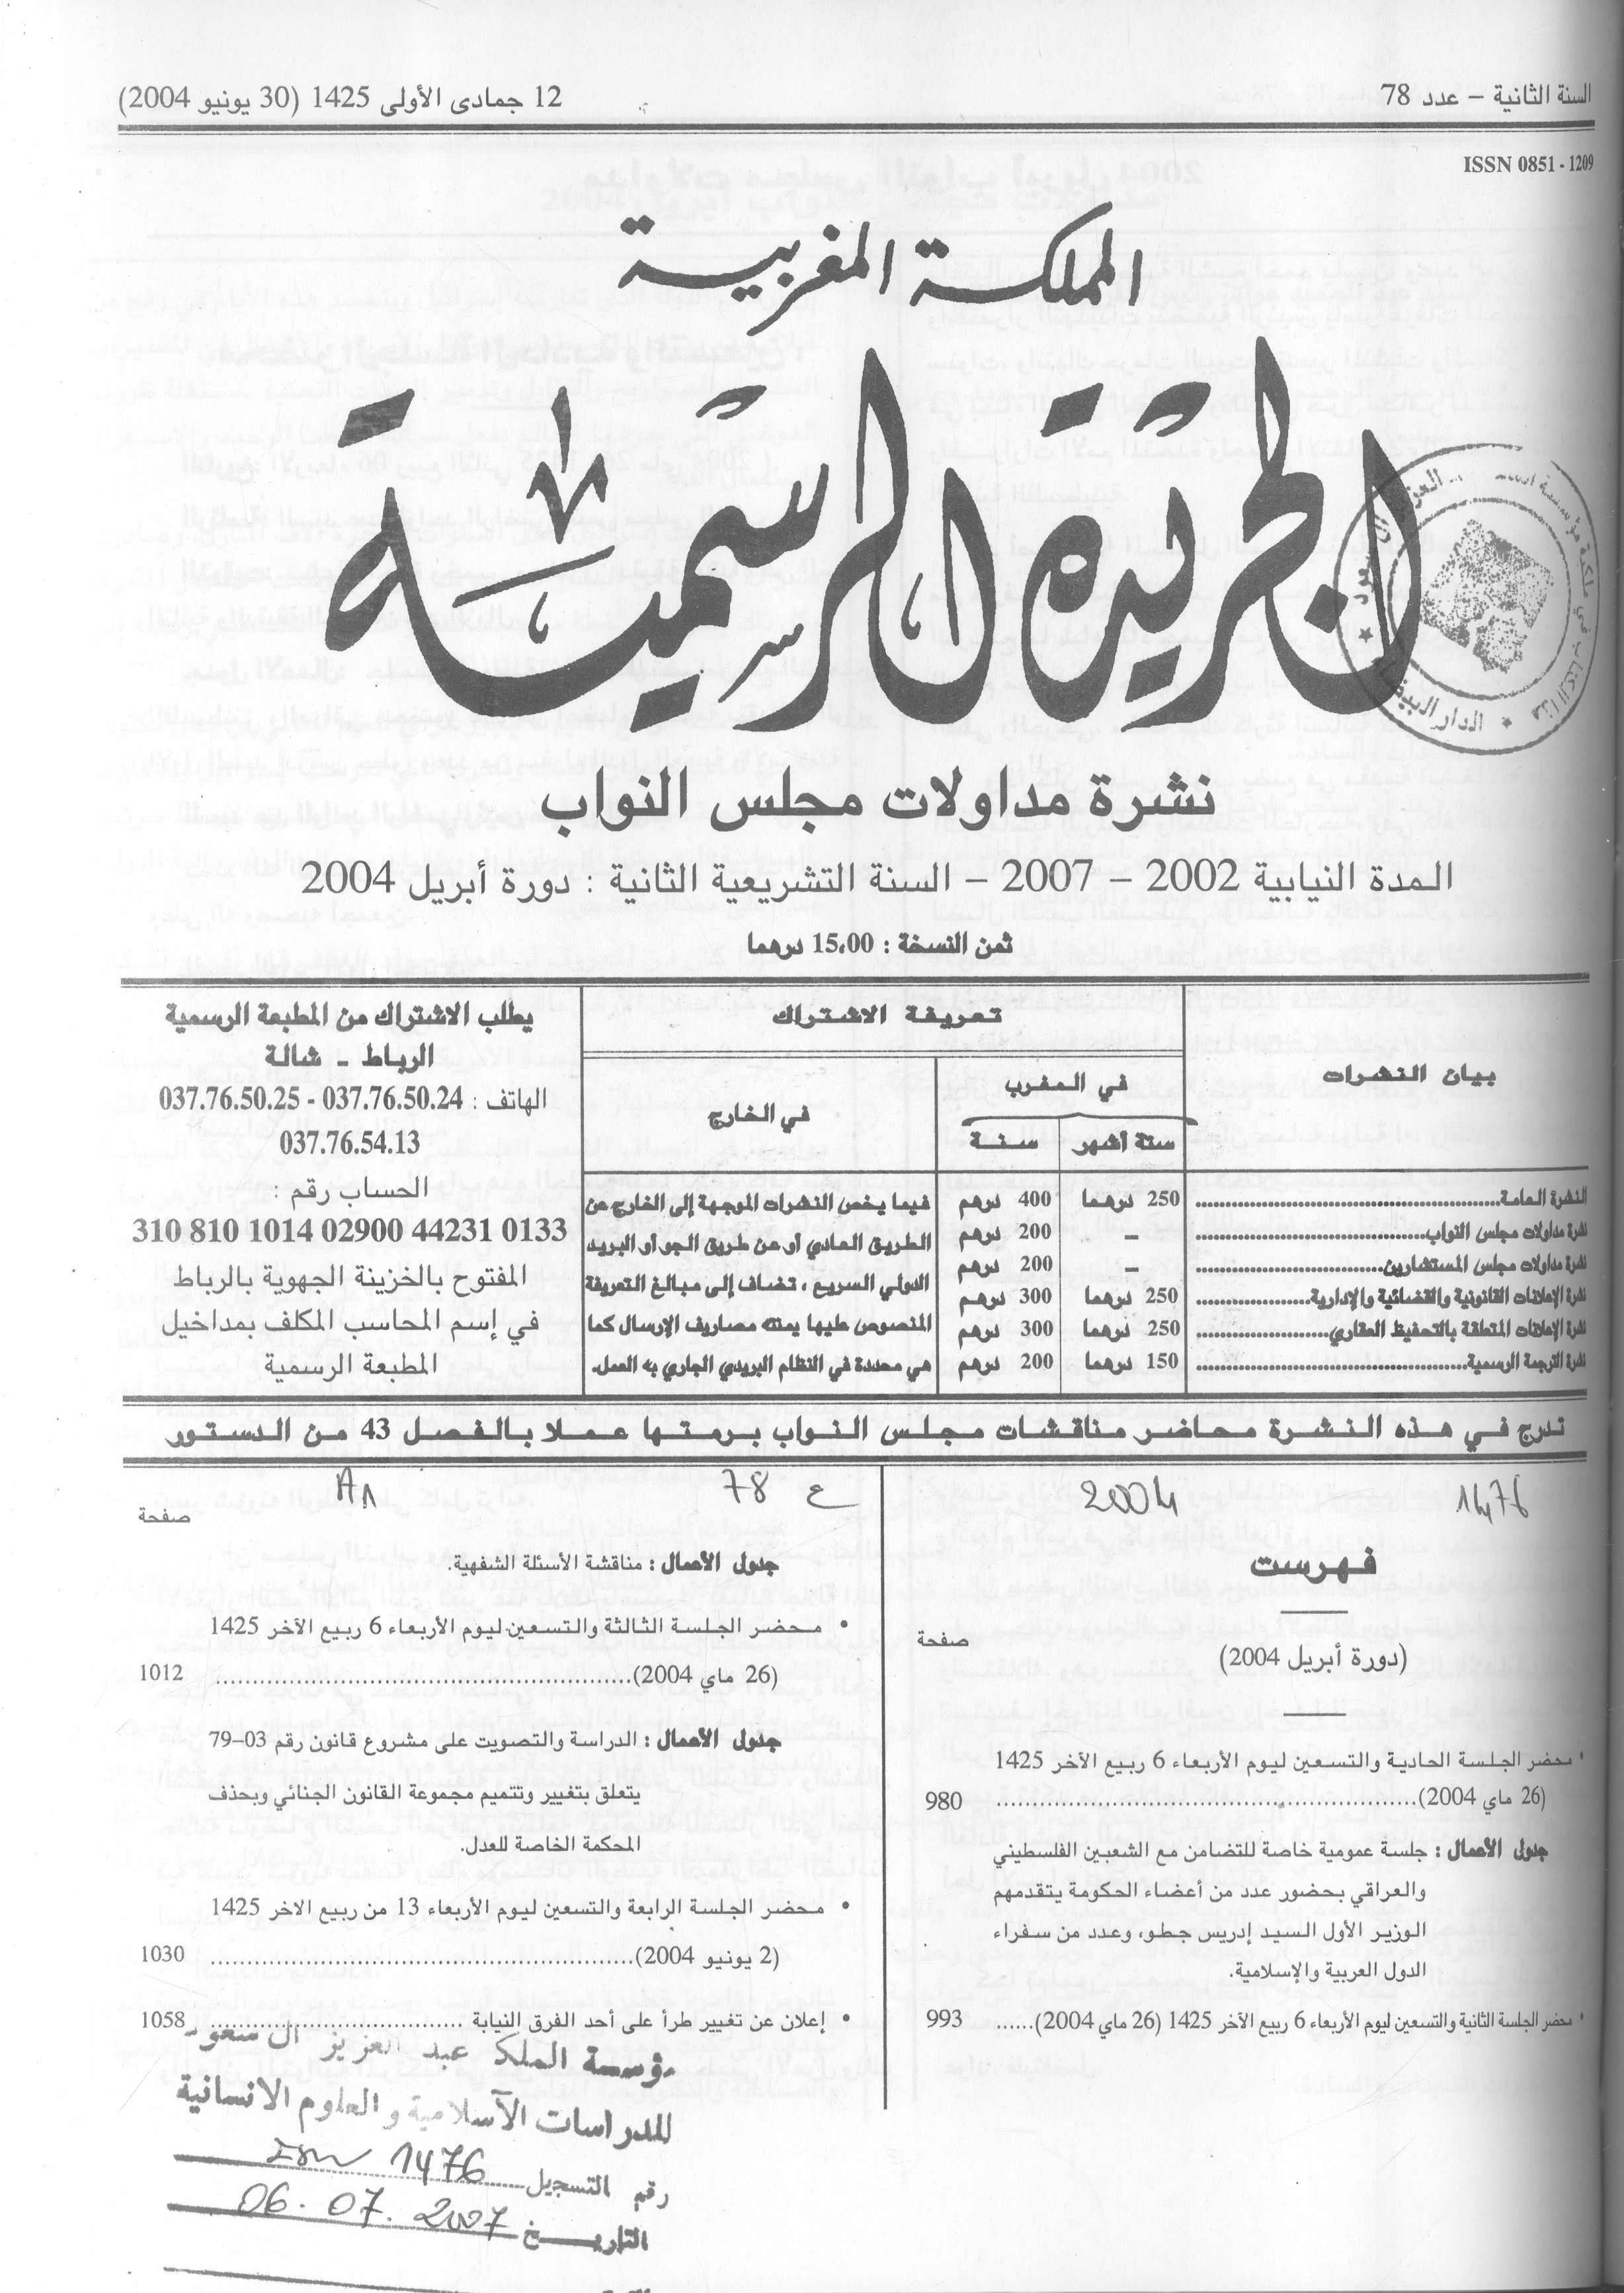 السنة الثانية – عدد 78
12 جمادى الأولى 1425 (30 يونيو 2004)
ISSN 0851 - 1209
المملكة المغربية
الجريدة الرسمية
نشرة مداولات مجلس النواب
المدة النيابية 2002 – 2007 – السنة التشريعية الثانية : دورة أبريل 2004
ثمن النسخة : 15،00 درهما
بيان النشرات
تعريفة الاشتراك
في المغرب
ستة أشهر
سنة
في الخارج
النشرة العامة 250 درهما 400 درهم
نشرة مداولات مجلس النواب – 200 درهم
نشرة مداولات مجلس المستشارين – 200 درهم
نشرة الإعلانات القانونية والقضائية والإدارية 250 درهما 300 درهم
نشرة الإعلانات المتعلقة بالتحفيظ العقاري 250 درهما 300 درهم
نشرة الترجمة الرسمية 150 درهما 200 درهم
فيما يخص النشرات الموجهة إلى الخارج عن
الطريق العادي أو عن طريق الجو أو البريد
الدولي السريع ، تضاف إلى مبالغ التعريفة
المنصوص عليها يمنته مصاريف الإرسال كما
هي محددة في النظام البريدي الجاري به العمل.
يطلب الاشتراك من المطبعة الرسمية
الرباط - شالة
الهاتف : 037.76.50.24 - 037.76.50.25
037.76.54.13
الحساب رقم :
310 810 1014 02900 44231 0133
المفتوح بالخزينة الجهوية بالرباط
في إسم المحاسب المكلف بمداخيل
المطبعة الرسمية
تدرج في هذه النشرة محاضر مناقشات مجلس النواب برمتها عملا بالفصل 43 من الدستور
1476
2004
ع 78
فهرست
(دورة أبريل 2004)
صفحة
محضر الجلسة الحادية والتسعين ليوم الأربعاء 6 ربيع الآخر 1425
(26 ماي 2004) 980
جدول الأعمال : جلسة عمومية خاصة للتضامن مع الشعبين الفلسطيني
والعراقي بحضور عدد من أعضاء الحكومة يتقدمهم
الوزير الأول السيد إدريس جطو، وعدد من سفراء
الدول العربية والإسلامية.
محضر الجلسة الثانية والتسعين ليوم الأربعاء 6 ربيع الآخر 1425 (26 ماي 2004)...... 993
صفحة
جدول الأعمال : مناقشة الأسئلة الشفهية.
• محضر الجلسة الثالثة والتسعين ليوم الأربعاء 6 ربيع الآخر 1425
(26 ماي 2004) 1012
جدول الأعمال : الدراسة والتصويت على مشروع قانون رقم 03–79
يتعلق بتغيير وتتميم مجموعة القانون الجنائي وبحذف
المحكمة الخاصة للعدل.
• محضر الجلسة الرابعة والتسعين ليوم الأربعاء 13 من ربيع الآخر 1425
(2 يونيو 2004) 1030
• إعلان عن تغيير طرأ على أحد الفرق النيابة 1058
مؤسسة الملك عبد العزيز آل سعود
للدراسات الآسلامية و العلوم الانسانية
رقم التسجيل 1476
التاريخ 06.07.2007
الدار البيضاء